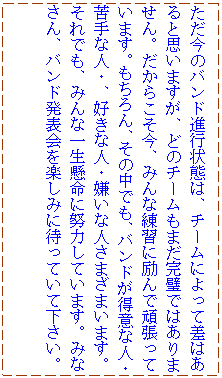 ただ今のバンド進行状態は、チームによって差はあ
ると思いますが、どのチームもまだ完璧ではありま
せん。だからこそ今、みんな練習に励んで頑張って
います。もちろん、その中でも、バンドが得意な人・
苦手な人・、好きな人・嫌いな人さまざまいます。
それでも、みんな一生懸命に努力しています。みな
さん、バンド発表会を楽しみに待っていて下さい。